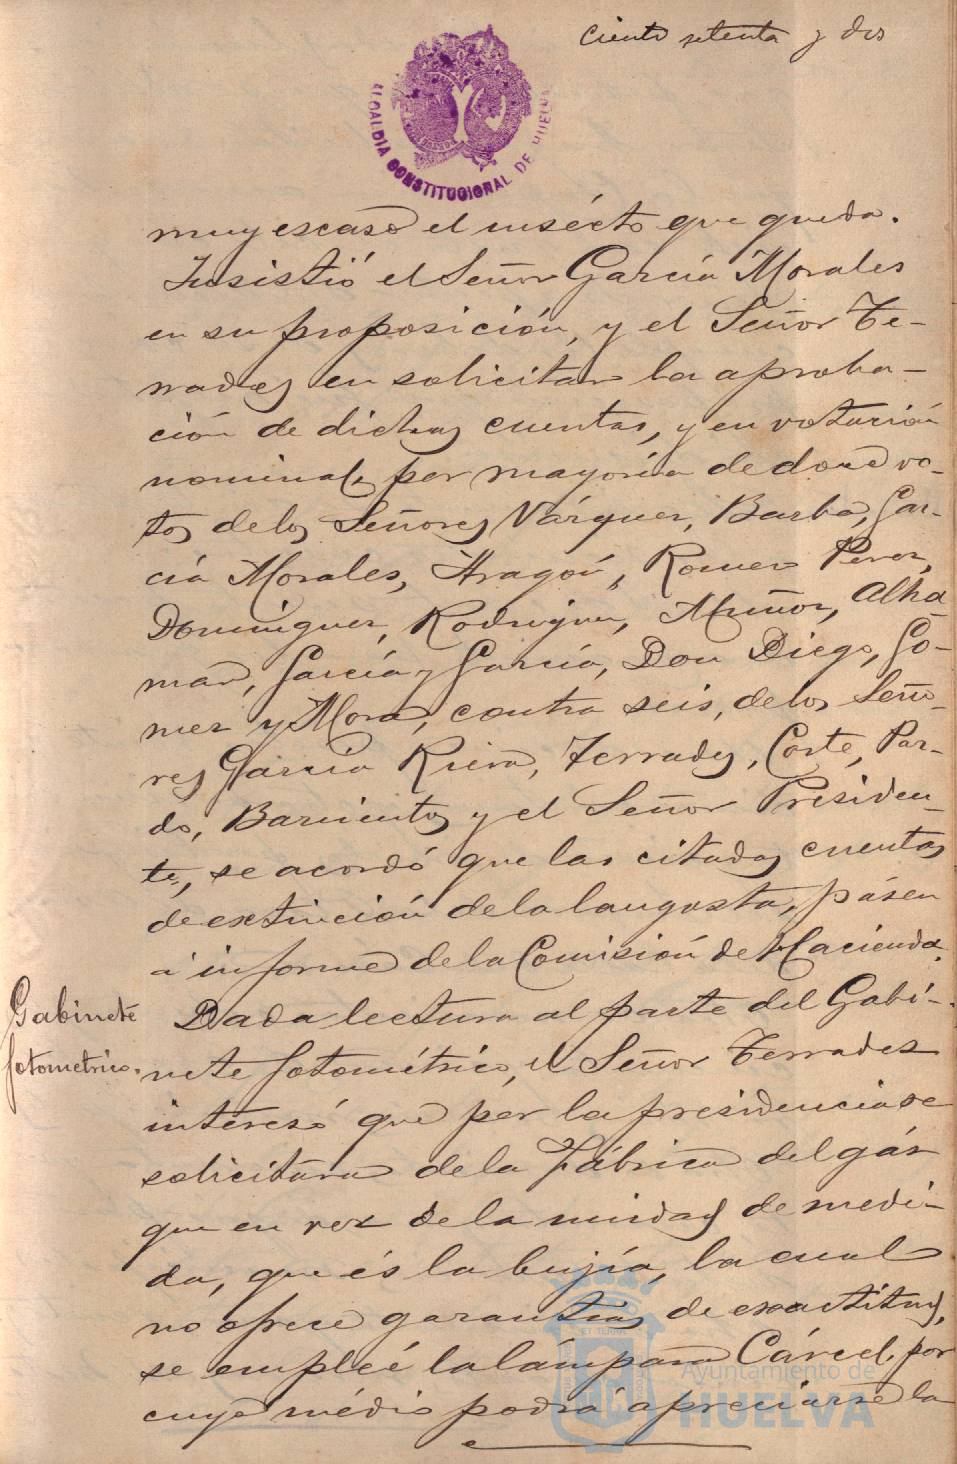 ciento setenta y dos
ALCALDIA CONSTITUCIONAL DE HUELVA
muy escaso el insécto que queda.
Insistió el Señor García Morales
en su proposición, y el Señor Te-
rrades en solicitar la aproba-
ción de dichas cuentas, y en votación
nominal, por mayoría de doce vo-
tos de los Señores Vázquez, Barba, Gar-
cía Morales, Aragón, Romero Perez,
Dominguez, Rodriguez, Muñoz, Alha-
mar, García y García, Don Diego, Go-
mez y Mora, contra seis, de los Seño-
res García Riera, Terrades, Corte, Par-
do, Barrientos y el Señor Presiden-
te, se acordó que las citadas cuentas
de extinción de la langosta, pásen
á informe de la Comisión de Hacienda.
Gabinete
fotometrico.
Dada lectura al parte del Gabi-
nete fotométrico, el Señor Terrades
interesó que por la presidencia se
solicitara de la Fábrica del gás
que en vez de la unidad de medi-
da, que és la bujía, la cual
no ofrece garantias de exactitud,
se empleé la lámpara Cárcel, por
cuyo médio podrá apreciarse la
Ayuntamiento de
HUELVA